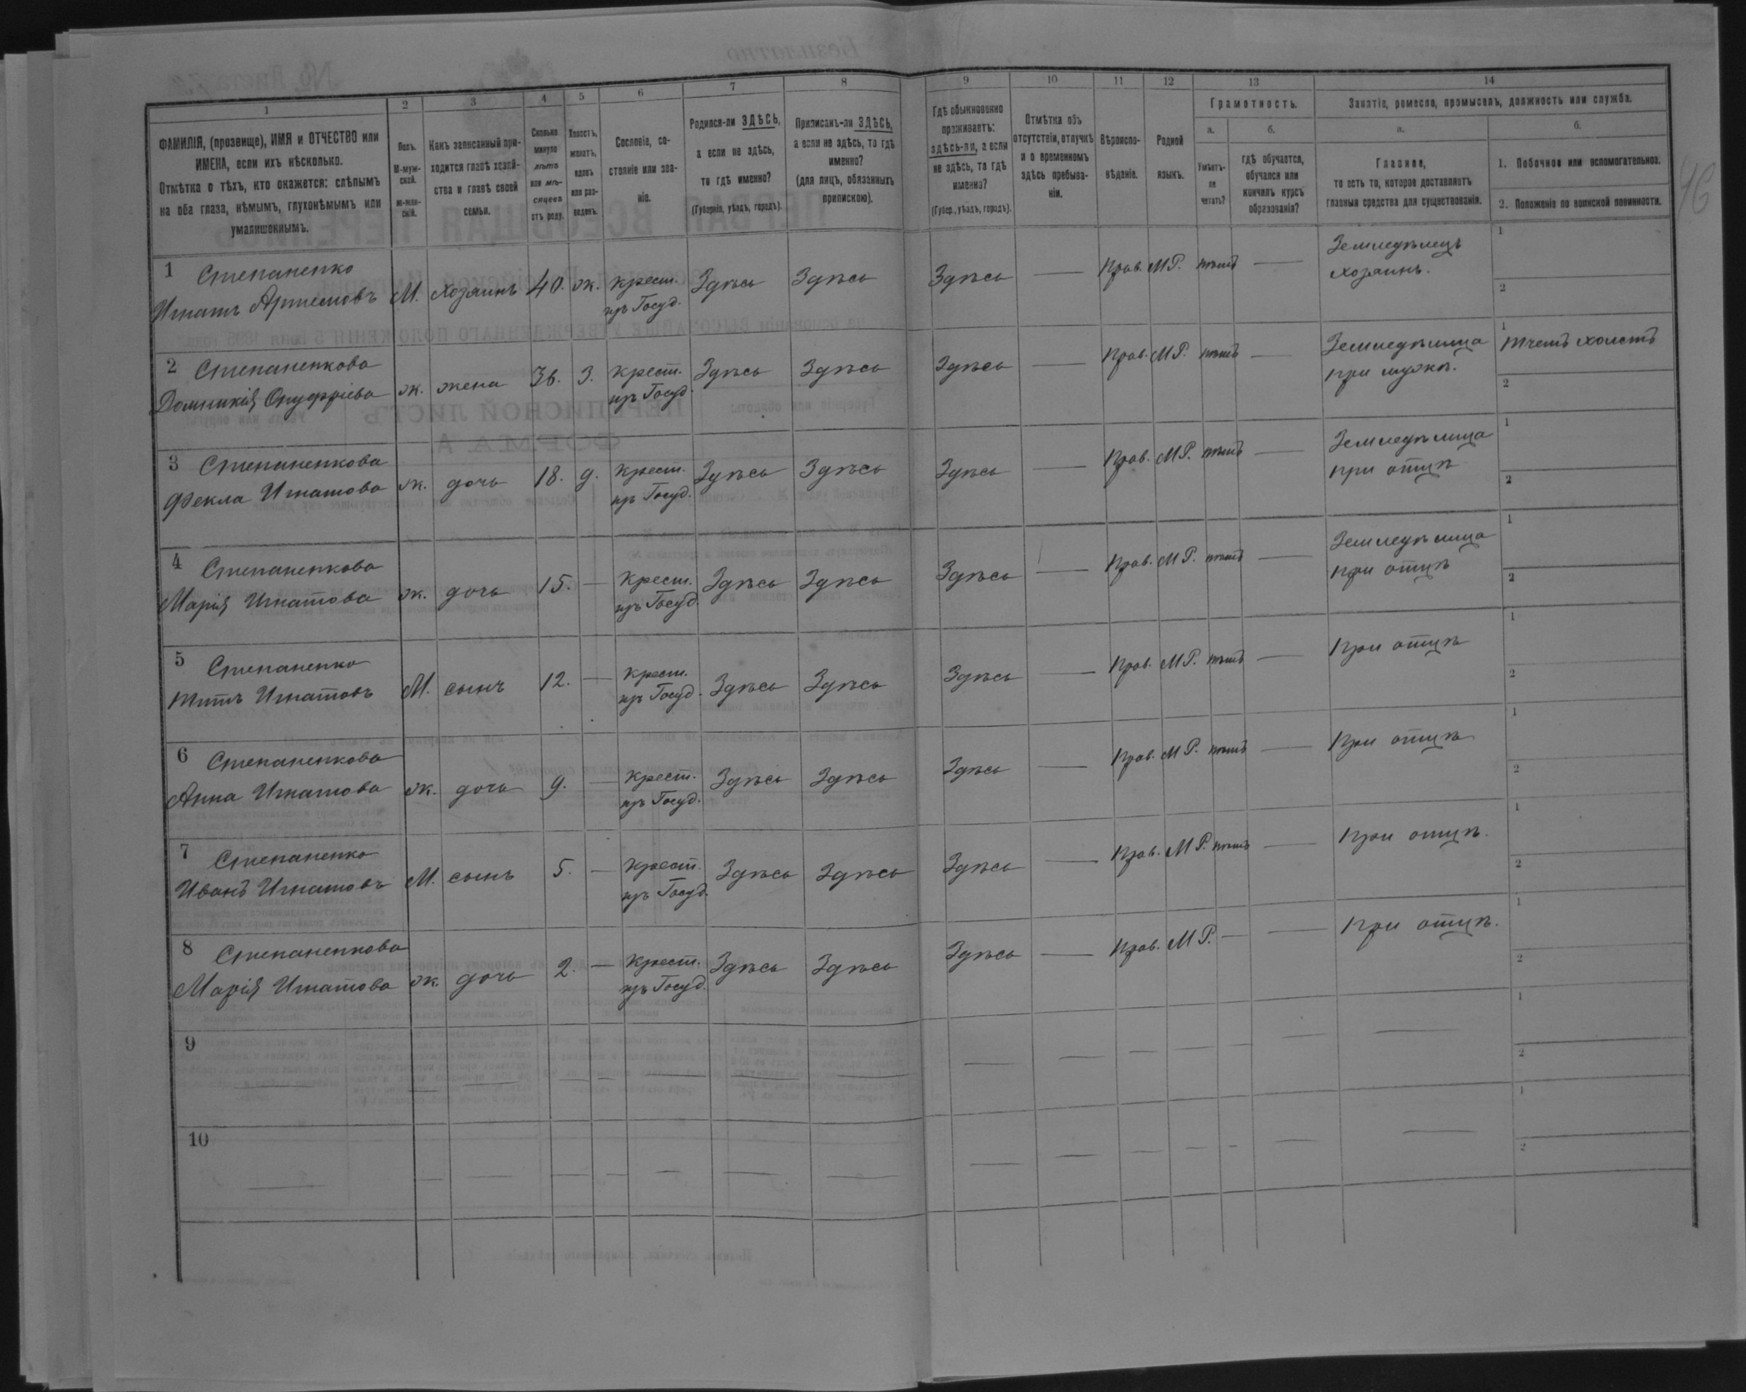 1 2 3 4 5 6 7 8 9 10 11 12 13 14
ФАМИЛІЯ, (прозвище), ИМЯ и ОТЧЕСТВО или
ИМЕНА, если ихъ нѣсколько.
Отмѣтка о тѣхъ, кто окажется: слѣпымъ
на оба глаза, нѣмымъ, глухонѣмымъ или
умалишеннымъ.
Полъ.
М-муж-
ской.
Ж-жен-
скій.
Какъ записанный при-
ходится главѣ хозяй-
ства и главѣ своей
семьи.
Сколько
минуло
лѣтъ
или мѣ-
сяцевъ
отъ роду.
Холостъ,
женатъ,
вдовъ
или раз-
веденъ.
Сословіе, со-
стояніе или зва-
ніе.
Родился-ли ЗДѢСЬ,
а если не здѣсь,
то гдѣ именно?
(Губернія, уѣздъ, городъ).
Приписанъ-ли ЗДѢСЬ,
а если не здѣсь, то гдѣ
именно?
(для лицъ, обязанныхъ
припискою).
Гдѣ обыкновенно
проживаетъ:
здѣсь-ли, а если
не здѣсь, то гдѣ
именно?
(Губер., уѣздъ, городъ).
Отмѣтка объ
отсутствіи, отлучкѣ
и о временномъ
здѣсь пребыва-
ніи.
Вѣроиспо-
вѣданіе.
Родной
языкъ.
Грамотность.
а.
Умѣетъ-
ли
читать?
б.
гдѣ обучается,
обучался или
кончилъ курсъ
образованія?
Занятіе, ремесло, промыселъ, должность или служба.
а.
Главное,
то есть то, которое доставляетъ
главныя средства для существованія.
б.
1. Побочное или вспомогательное.
2. Положеніе по воинской повинности.
46
1 Степаненко
Игнатъ Артемовъ М. хозяинъ 40. ж. крест. изъ Госуд. Здѣсь Здѣсь Здѣсь — Прав. М Р. нѣтъ — Земледѣлецъ хозяинъ.
2 Степаненкова
Домникія Онуфріева ж. жена 36. З. Крест. изъ Госуд. Здѣсь Здѣсь Здѣсь — Прав. М Р. нѣтъ — Земледѣлица при мужѣ. Ткетъ холстъ
3 Степаненкова
Фекла Игнатова ж. дочь 18. д. Крест. изъ Госуд. Здѣсь Здѣсь Здѣсь — Прав. М Р. нѣтъ — Земледѣлица при отцѣ
4 Степаненкова
Марія Игнатова ж. дочь 15. — Крест. изъ Госуд. Здѣсь Здѣсь Здѣсь — Прав. М Р. нѣтъ — Земледѣлица при отцѣ
5 Степаненко
Титъ Игнатовъ М. сынъ 12. — Крест. изъ Госуд. Здѣсь Здѣсь Здѣсь — Прав. М Р. нѣтъ — При отцѣ
6 Степаненкова
Анна Игнатова ж. дочь 9. — Крест. изъ Госуд. Здѣсь Здѣсь Здѣсь — Прав. М Р. нѣтъ — При отцѣ
7 Степаненко
Иванъ Игнатовъ М. сынъ 5. — Крест. изъ Госуд. Здѣсь Здѣсь Здѣсь — Прав. М Р. нѣтъ — При отцѣ.
8 Степаненкова
Марія Игнатова ж. дочь 2. — Крест. изъ Госуд. Здѣсь Здѣсь Здѣсь — Прав. М Р. — — При отцѣ.
9
10